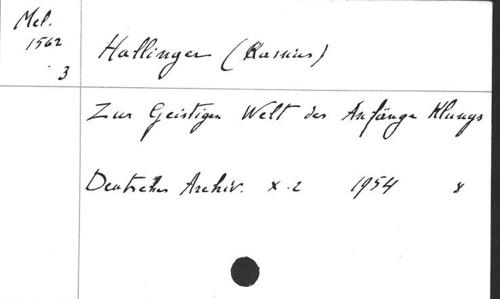 Mel.
1562
3
Hallinger (Kassius)
Zur Geistigen Welt der Anfänge Klunys
Deutsches Archiv. X.2 1954 8